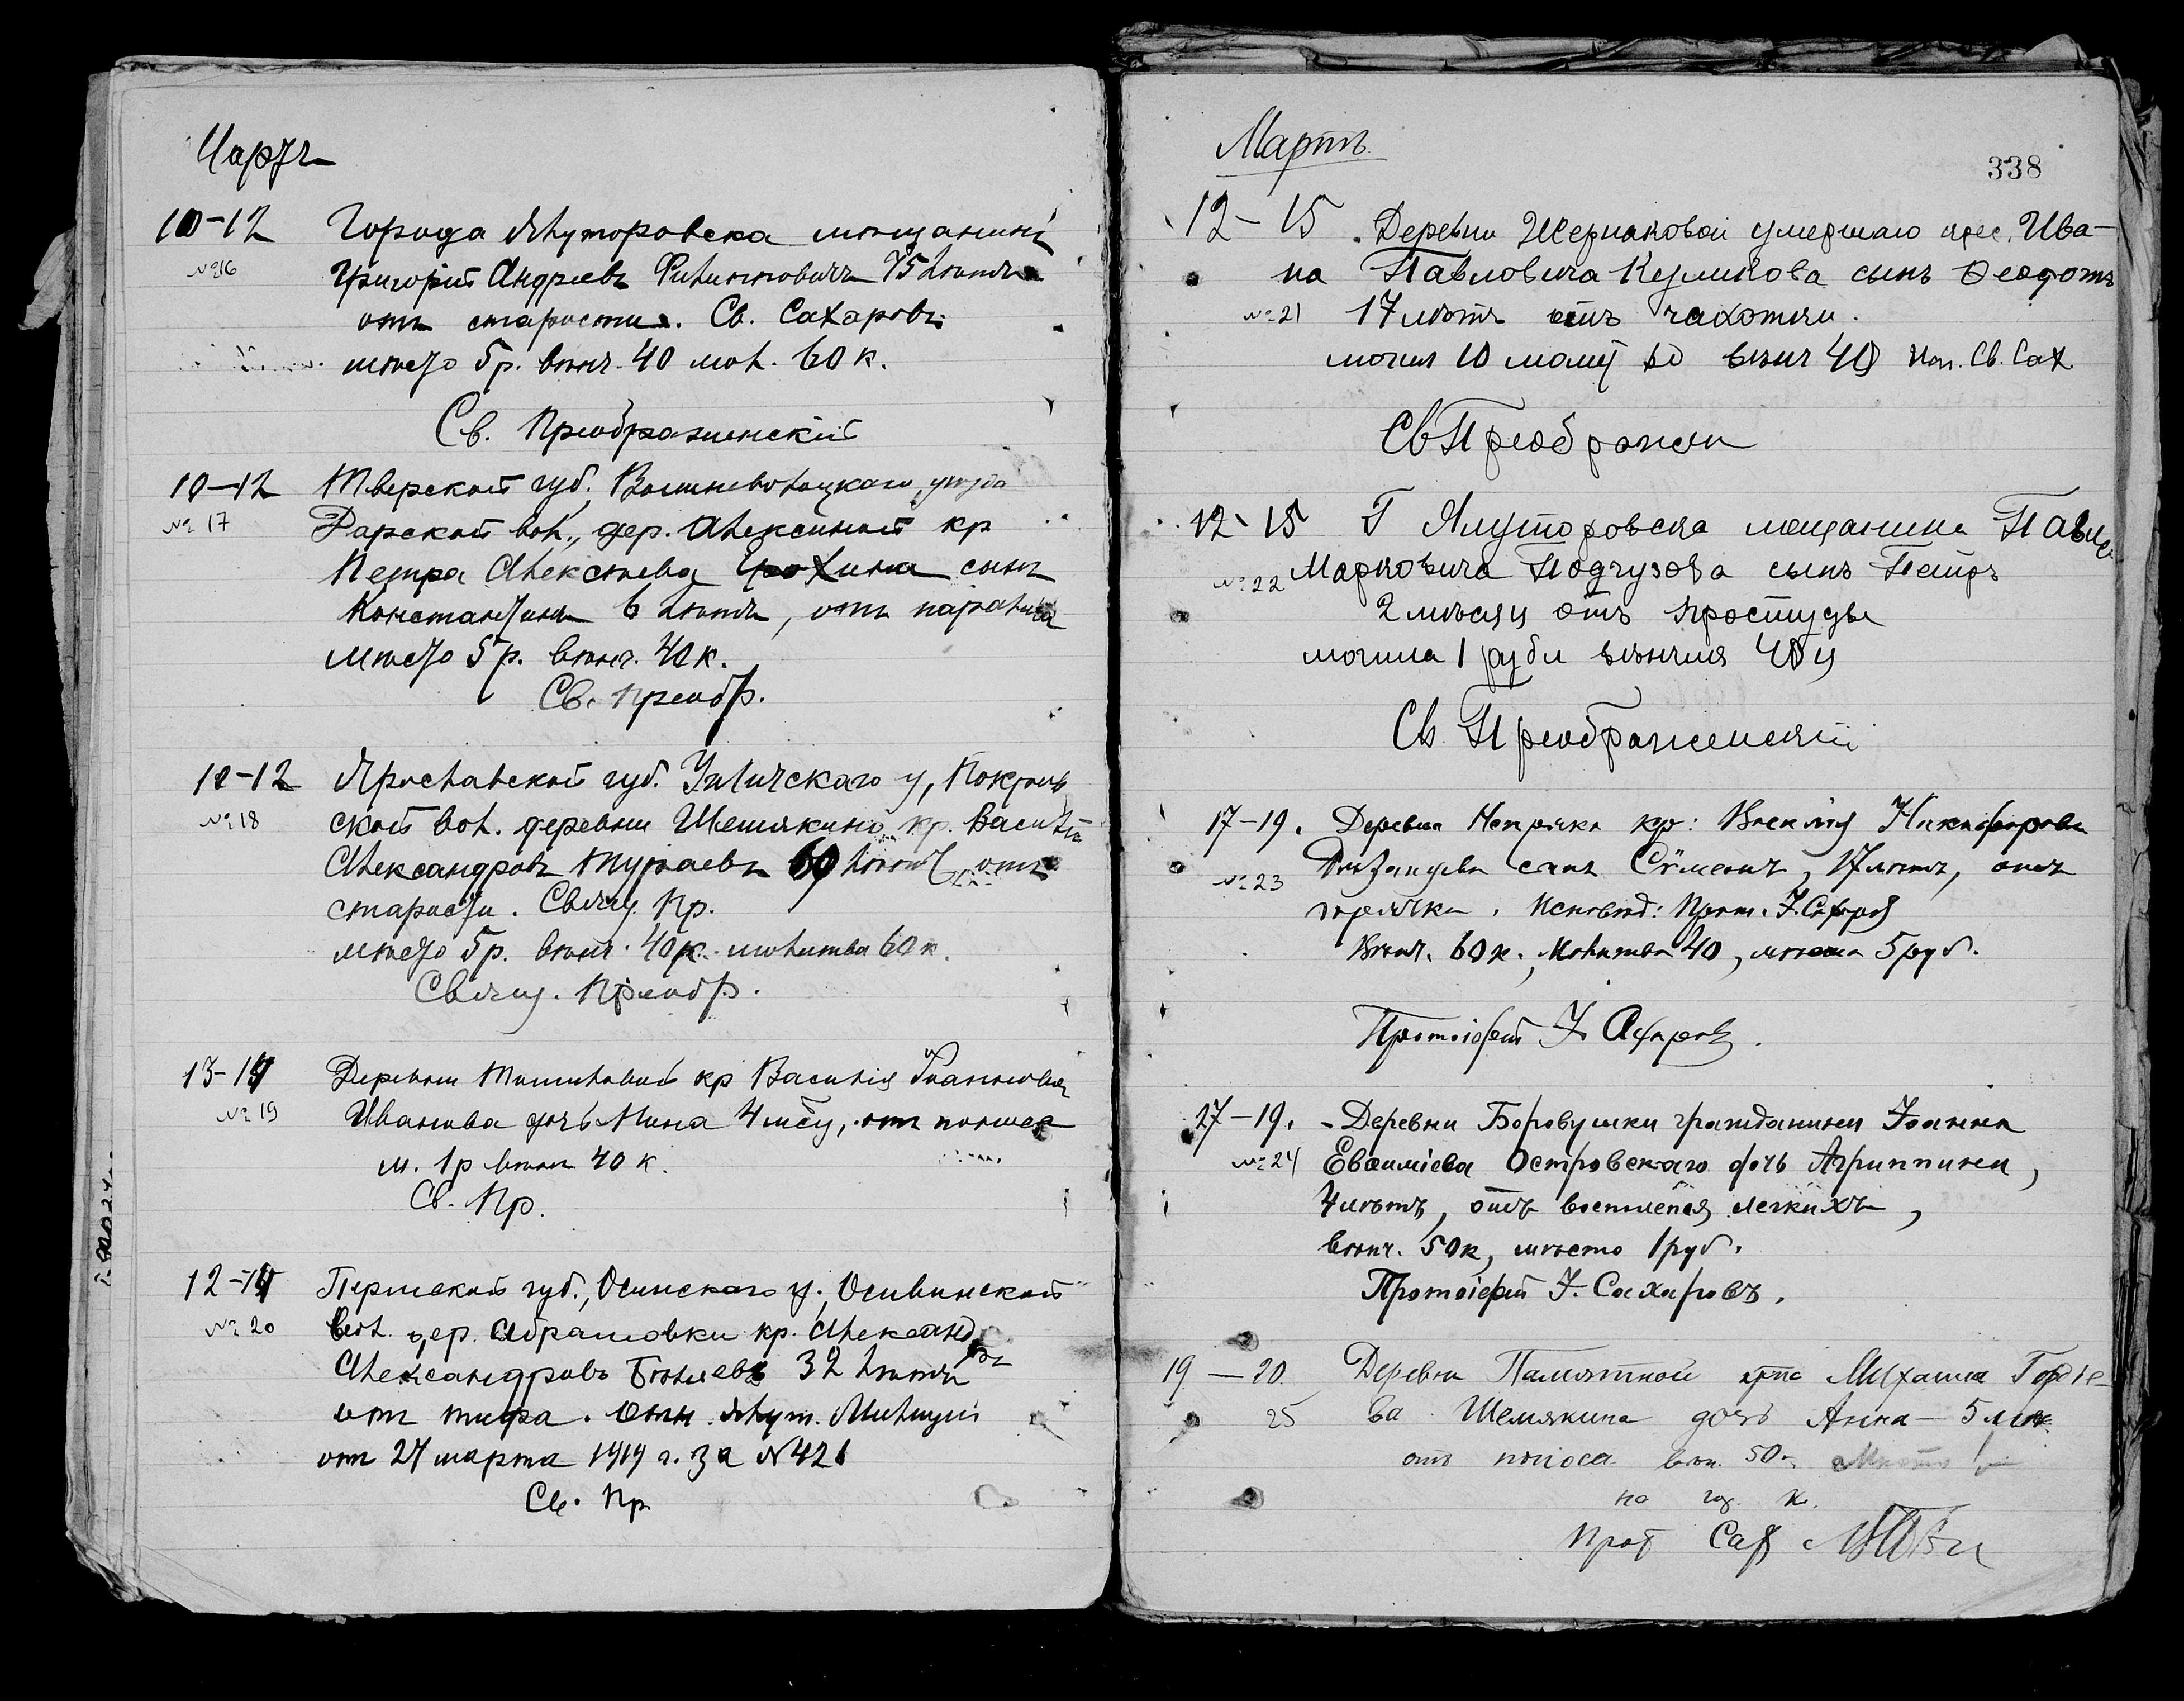 Мартъ
10-12 Города Ялуторовска мѣщанинъ
№16 Григорій Андреевъ Филипповичъ 75 лѣтъ
отъ старости. Св. Сахаровъ
мѣсто 5 р. вѣнч. 40 мол. 60 к.
Св. Преображенскій
10-12 Тверской губ. Вышневолоцкаго уѣзда
№ 17 Парской вол., дер. Алексиной кр
Петра Алексѣева сынъ
Константинъ 6 лѣтъ, отъ паралича
мѣсто 5 р. вѣнч. 40 к.
Св. Преобр.
10-12 Ярославской губ. Угличскаго у, Покров
№ 18 ской вол. деревни Шемякино кр. Василій
Александровъ Тураевъ 60 лѣтъ отъ
старости. Свящ. Пр.
мѣсто 5 р. вѣнч. 40 к. молитва 60 к.
Свящ. Преобр.
13-14 Деревни кр Василія
№ 19 Иванова дочь Нина 4 мѣс, отъ поноса
м. 1 р вѣнч 40 к.
Св. Пр.
12-14 Пермской губ., Осинскаго у.,
№ 20 вол. дер. Абрамовки кр. Александръ
Александровъ Бѣляевъ 32 лѣтъ
отъ тифа. Отн. Ялут. Милиціи
отъ 24 марта 1919 г. за № 421
Св. Пр
Мартъ
338
12-15 Деревни умершаго крес. Ива-
на Павловича Куликова сынъ Ѳеодотъ
№ 21 17 лѣтъ отъ чахотки.
могил 10 молит 60 вѣнч 40 Исп. Св. Сах
Св Преображен
12-15 Г Ялуторовска мещанина Павла
№ 22 Марковича Подгузова сынъ Петръ
2 мѣсяц отъ простуды
могила 1 рубл вѣнчик 40 к
Св. Преображенскій
17-19. Деревни кр: Никифорова
№ 23 сынъ Сѵмеонъ, 17 лѣтъ, отъ
горячки. Исповѣд: Прот. І. Сахаров
Вѣнч. 60 к., Молитва 40, мѣсто 5 руб.
Протоіерей І. Сахаровъ.
17-19. - Деревни Боровушки гражданина Іоанна
№ 24 Евѳиміева Островскаго дочь Агриппина,
4 лѣтъ, отъ воспленія легкихъ,
вѣнч. 50 к, мѣсто 1 руб.
Протоіерей І. Сахаровъ.
19-20 Деревни Памятной кр Михаила Гордѣе-
25 ва Шемякина дочь Анна - 5
отъ поноса вѣн. 50 к Мѣсто
Прот Сах